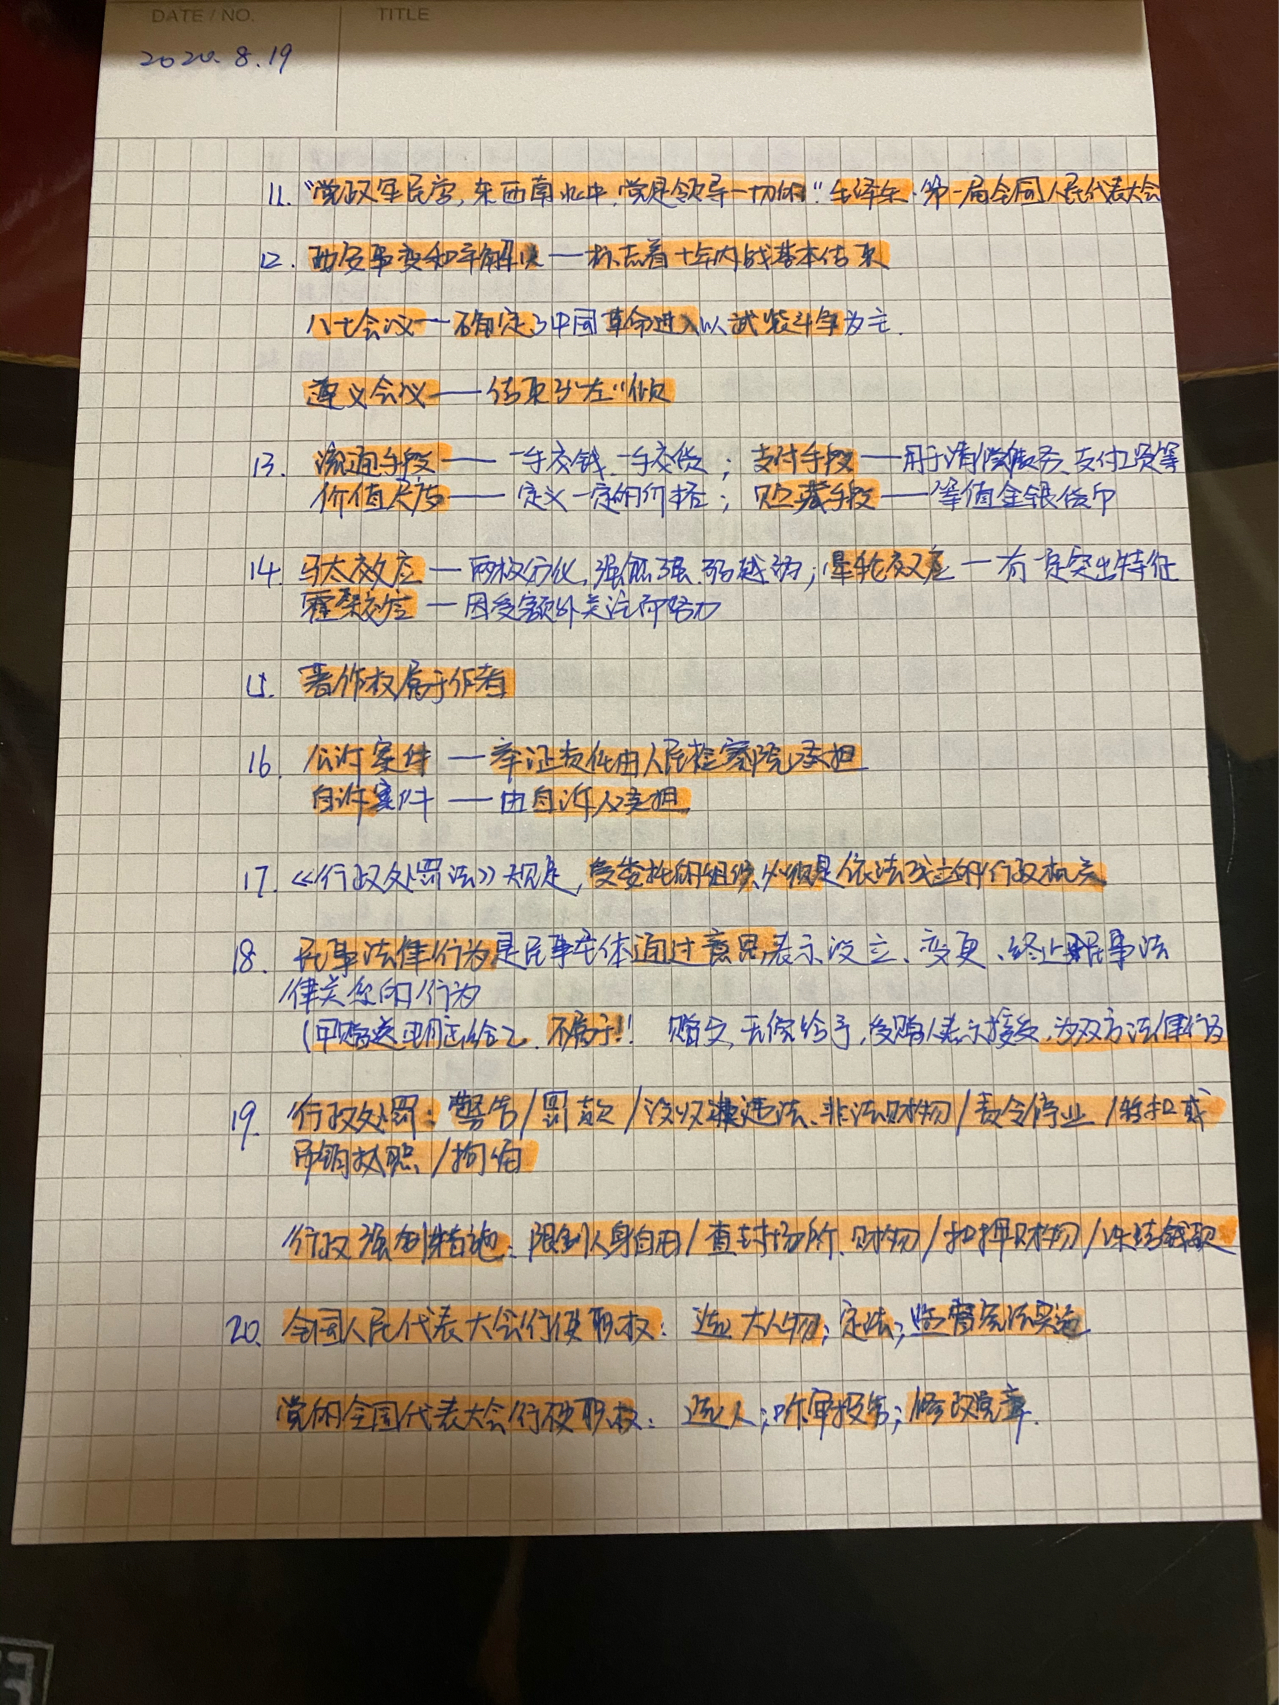 DATE / NO.
TITLE
2020.8.19
11. "党政军民学,东西南北中,党是领导一切的" 毛泽东·第一届全国人民代表大会
12. 西安事变和平解决——标志着十年内战基本结束
八七会议——确定了中国革命进入以武装斗争为主.
遵义会议——结束了"左"倾
13. 流通手段——一手交钱一手交货; 支付手段——用于清偿债务、支付工资等
价值尺度——定义一定的价格; 贮藏手段——等值金银货币
14. 马太效应——两极分化,强愈强 弱越弱; 晕轮效应——有一定突出特征
霍桑效应——因受额外关注而努力
15. 著作权属于作者
16. 公诉案件——举证责任由人民检察院承担
自诉案件——由自诉人承担
17. 《行政处罚法》规定,受委托的组织必须是依法成立的行政机关
18. 民事法律行为是民事主体通过意思表示设立、变更、终止民事法
律关系的行为
(甲赠送 给乙, 不属于!! 赠与,无偿给予,受赠人表示接受,为双方法律行为
19. 行政处罚: 警告/罚款/没收违法、非法财物/责令停业/暂扣或
吊销执照/拘留
行政强制措施: 限制人身自由/查封场所、财物/扣押财物/冻结钱款
20. 全国人民代表大会行使职权: 选大人物; 定法; 监督宪法实施
党的全国代表大会行使职权: 选人; 听审报告; 修改党章.